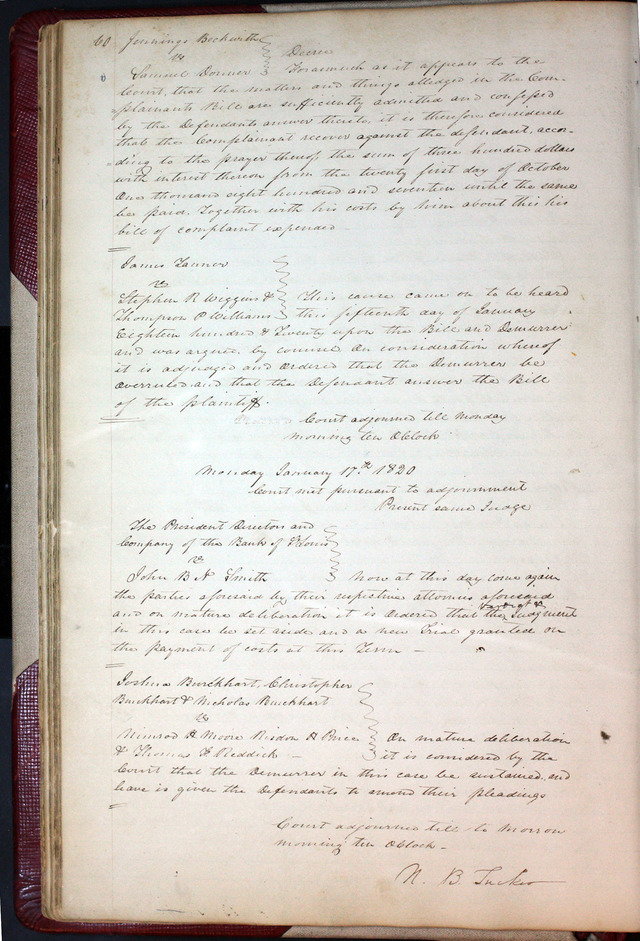 60 Jennings Beckwith
vs Decree
Samuel Donner Forasmuch as it appears to the
Court, that the matters and things alledged in the Com-
plainants Bill are sufficiently admitted and confessed
by the Defendants answer thereto, it is therefore considered
that the Complainant recover against the defendant, accor-
ding to the prayer thereof, the sum of three hundred dollars
with interest thereon from the twenty first day of October
One thousand eight hundred and seventeen until the same
be paid, Together with his costs by him about this his
bill of complaint expended
James Tanner
vs
Stephen R Wiggins & This cause came on to be heard
Thompson C Williams this fifteenth day of January
Eighteen hundred & Twenty upon the Bill and Demurrer
and was argued, by counsel On consideration whereof
it is adjudged and ordered that the Demurrer be
overruled and that the Defendant answer the Bill
of the plaintiff.
Court adjourned till Monday
morning ten OClock
Monday January 17th 1820
Court met pursuant to adjournment
Present same Judge
The President Directors and
Company of the Bank of St Louis
vs
John B N Smith Now at this day come again
the parties aforesaid by their respective attornies aforesaid
and on mature deliberation it is ordered that the Verdict & Judgment
in this case be set aside and a new Trial granted on
the payment of costs at this Term —
Joshua Burckhart, Christopher
Burckhart & Nicholas Burckhart
vs
Nimrod H Moore Risdon H Price On mature deliberation
& Thomas F Reddick — it is considered by the
Court that the Demurrer in this case be sustained, and
leave is given the Defendants to amend their pleadings
Court adjourned till to Morrow
morning ten OClock —
N. B. Tucker